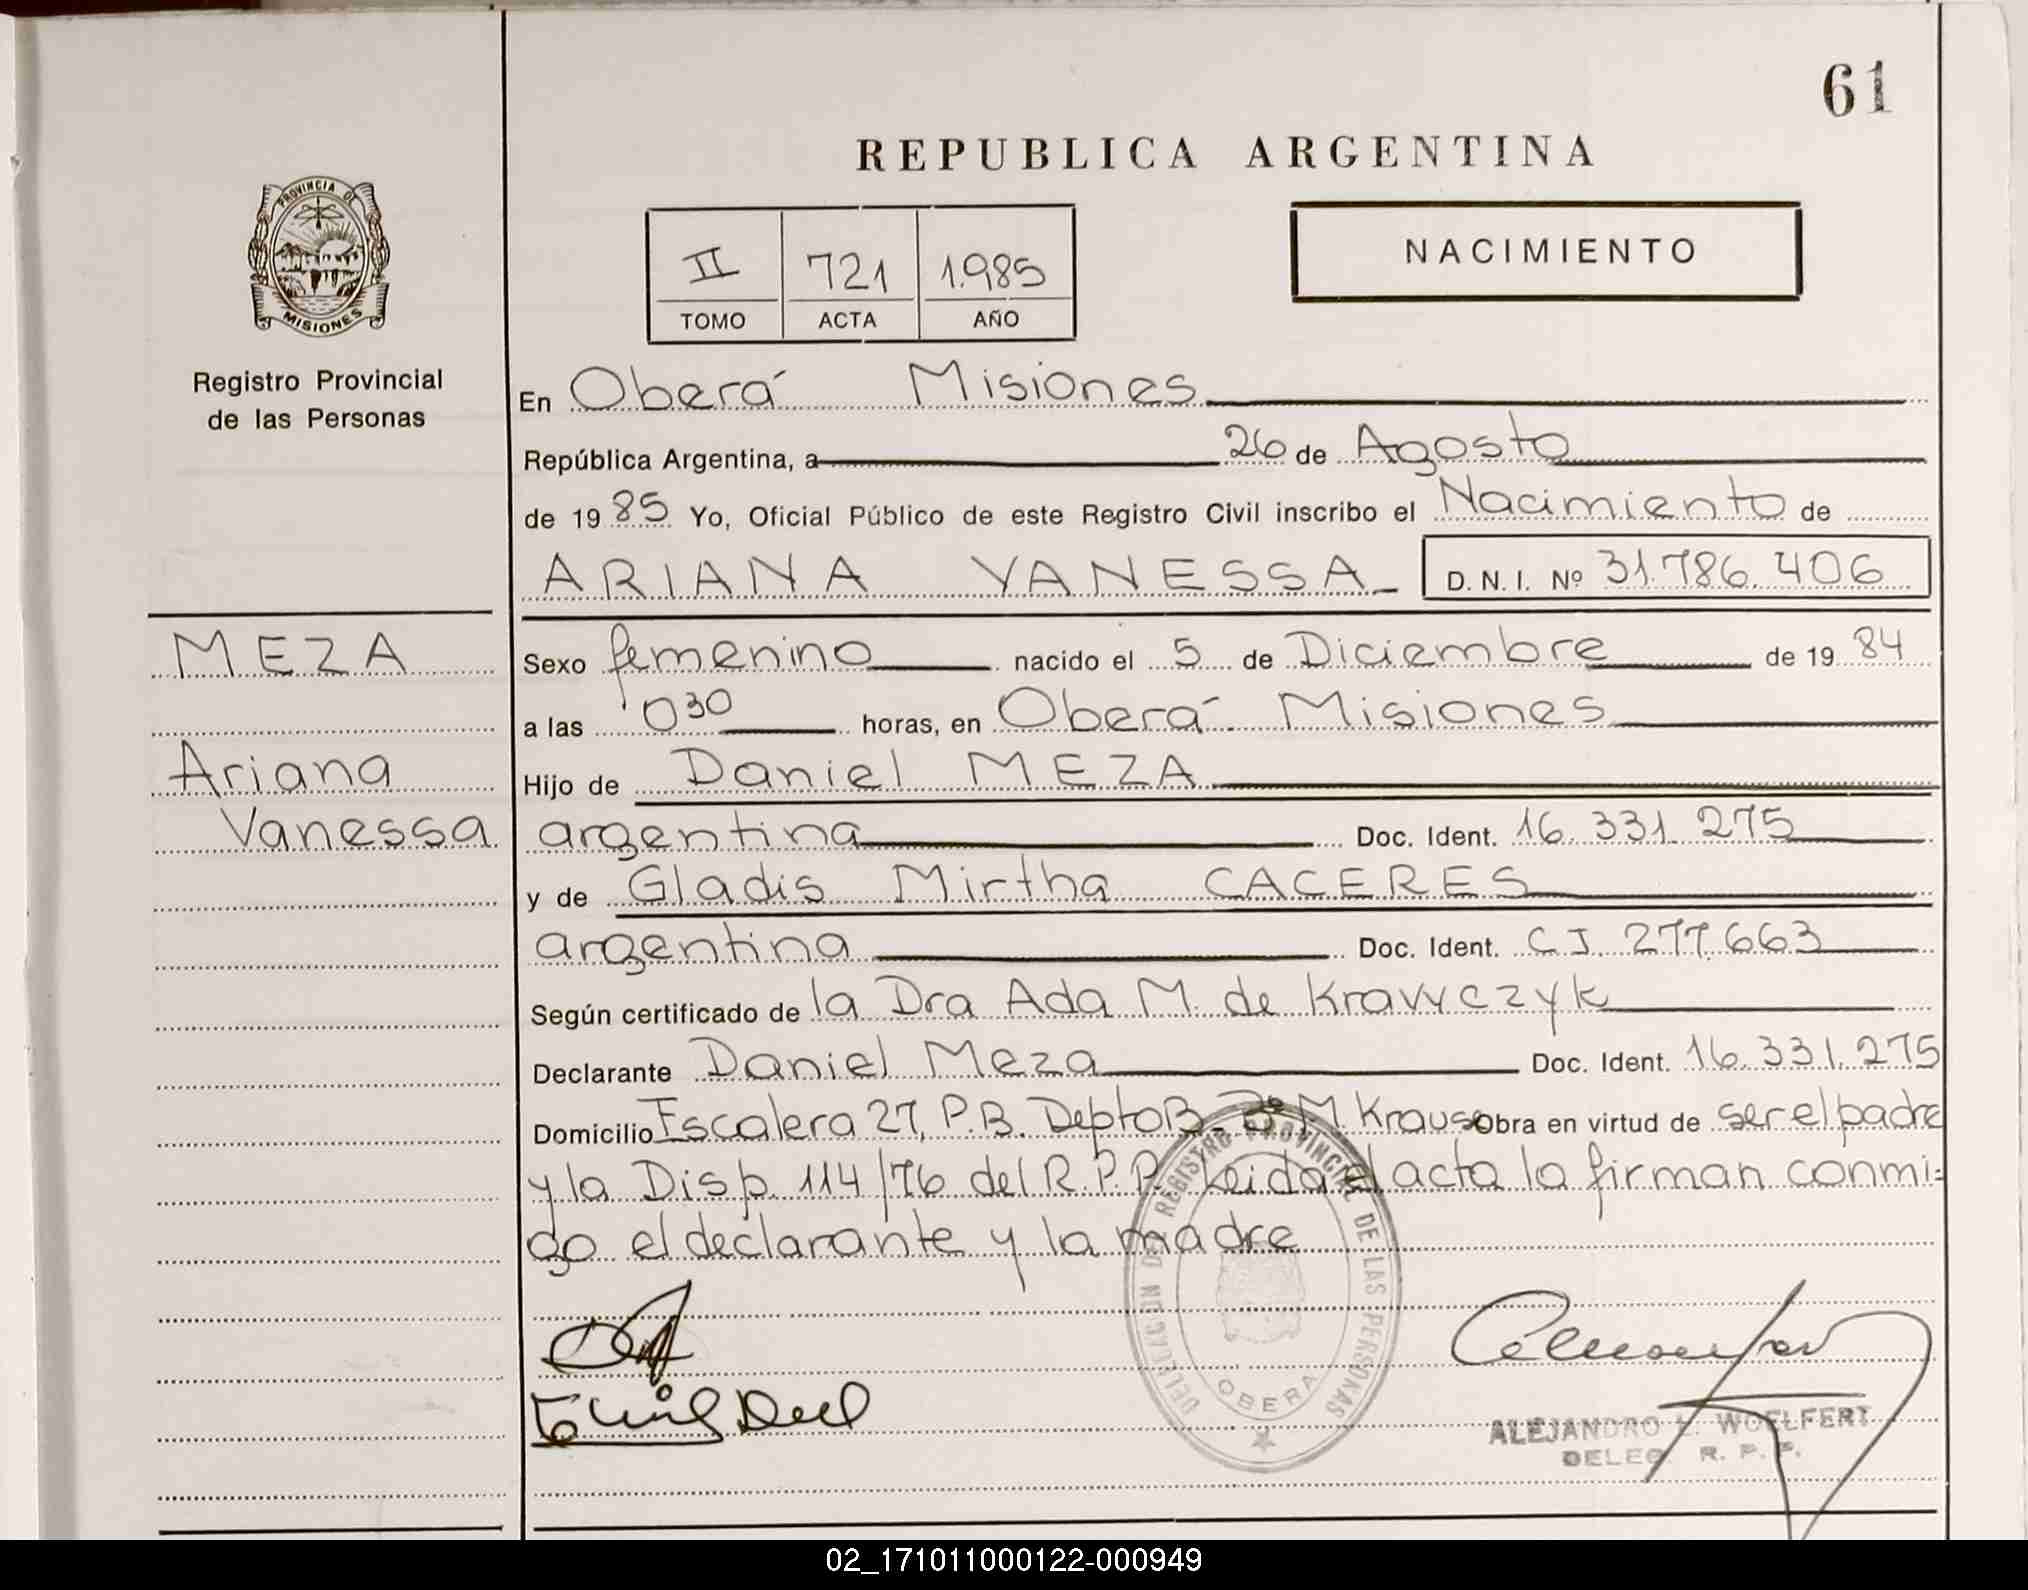 61
REPUBLICA ARGENTINA
PROVINCIA DE
MISIONES
Registro Provincial
de las Personas
II 721 1.985
TOMO ACTA AÑO
NACIMIENTO
En Oberá Misiones
República Argentina, a 26 de Agosto
de 1985 Yo, Oficial Público de este Registro Civil inscribo el Nacimiento de
ARIANA VANESSA D. N. I. Nº 31.786.406
MEZA
Ariana
Vanessa
Sexo femenino nacido el 5 de Diciembre de 1984
a las 030 horas, en Oberá Misiones
Hijo de Daniel MEZA
argentina Doc. Ident. 16.331.275
y de Gladis Mirtha CACERES
argentina Doc. Ident. C.I. 277.663
Según certificado de la Dra Ada M. de Kravyczyk
Declarante Daniel Meza Doc. Ident. 16.331.275
Domicilio Escalera 27, P.B. Depto B- Bº M. Krause Obra en virtud de ser el padre
y la Disp. 114/76 del R.P.P. Leida el acta la firman conmi-
go el declarante y la madre
DELEGACION DEL REGISTRO PROVINCIAL DE LAS PERSONAS
OBERA
ALEJANDRO L. WOELFERT
DELEG. R. P. P.
02_171011000122-000949